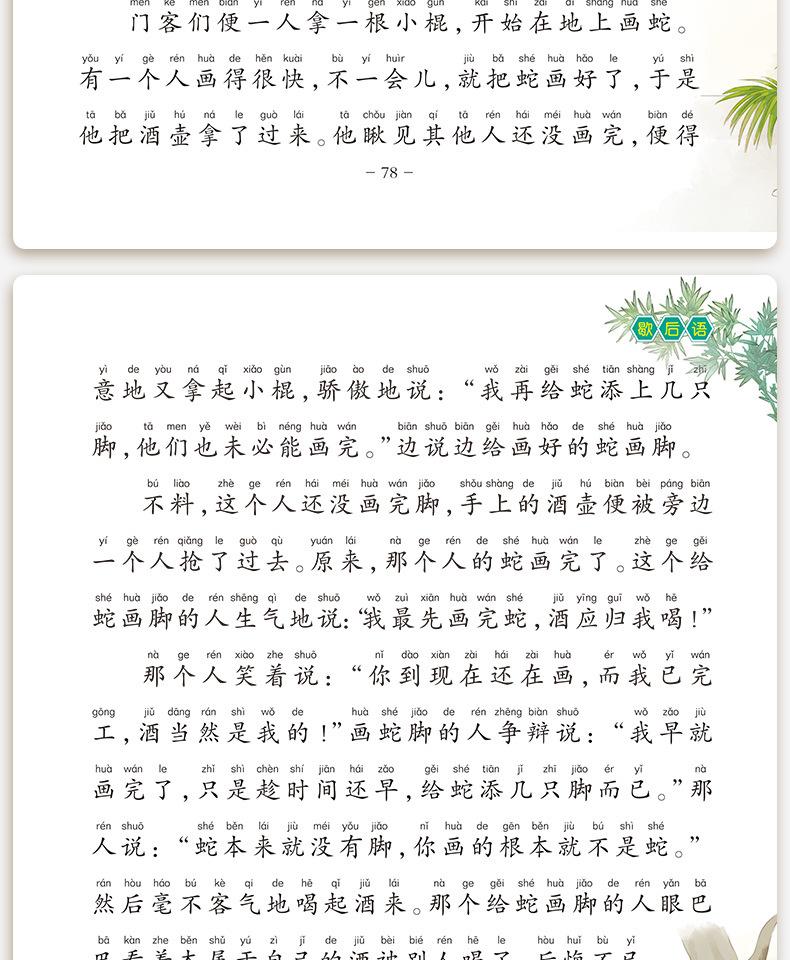 mén kè men biàn yì rén ná yì gēn xiǎo gùn kāi shǐ zài dì shang huà shé
门客们便一人拿一根小棍，开始在地上画蛇。
yǒu yí gè rén huà de hěn kuài bù yí huìr jiù bǎ shé huà hǎo le yú shì
有一个人画得很快，不一会儿，就把蛇画好了，于是
tā bǎ jiǔ hú ná le guò lái tā chǒu jiàn qí tā rén hái méi huà wán biàn dé
他把酒壶拿了过来。他瞅见其他人还没画完，便得
– 78 –
歇后语
yì de yòu ná qǐ xiǎo gùn jiāo ào de shuō wǒ zài gěi shé tiān shàng jǐ zhī
意地又拿起小棍，骄傲地说：“我再给蛇添上几只
jiǎo tā men yě wèi bì néng huà wán biān shuō biān gěi huà hǎo de shé huà jiǎo
脚，他们也未必能画完。”边说边给画好的蛇画脚。
bú liào zhè ge rén hái méi huà wán jiǎo shǒu shàng de jiǔ hú biàn bèi páng biān
不料，这个人还没画完脚，手上的酒壶便被旁边
yí gè rén qiǎng le guò qù yuán lái nà ge rén de shé huà wán le zhè ge gěi
一个人抢了过去。原来，那个人的蛇画完了。这个给
shé huà jiǎo de rén shēng qì de shuō wǒ zuì xiān huà wán shé jiǔ yīng guī wǒ hē
蛇画脚的人生气地说：“我最先画完蛇，酒应归我喝！”
nà ge rén xiào zhe shuō nǐ dào xiàn zài hái zài huà ér wǒ yǐ wán
那个人笑着说：“你到现在还在画，而我已完
gōng jiǔ dāng rán shì wǒ de huà shé jiǎo de rén zhēng biàn shuō wǒ zǎo jiù
工，酒当然是我的！”画蛇脚的人争辩说：“我早就
huà wán le zhǐ shì chèn shí jiān hái zǎo gěi shé tiān jǐ zhī jiǎo ér yǐ nà
画完了，只是趁时间还早，给蛇添几只脚而已。”那
rén shuō shé běn lái jiù méi yǒu jiǎo nǐ huà de gēn běn jiù bú shì shé
人说：“蛇本来就没有脚，你画的根本就不是蛇。”
rán hòu háo bú kè qi de hē qǐ jiǔ lái nà ge gěi shé huà jiǎo de rén yǎn bā
然后毫不客气地喝起酒来。那个给蛇画脚的人眼巴
bā kàn zhe běn shǔ yú zì jǐ de jiǔ bèi bié rén hē le hòu huǐ bù yǐ
巴看着本属于自己的酒被别人喝了，后悔不已